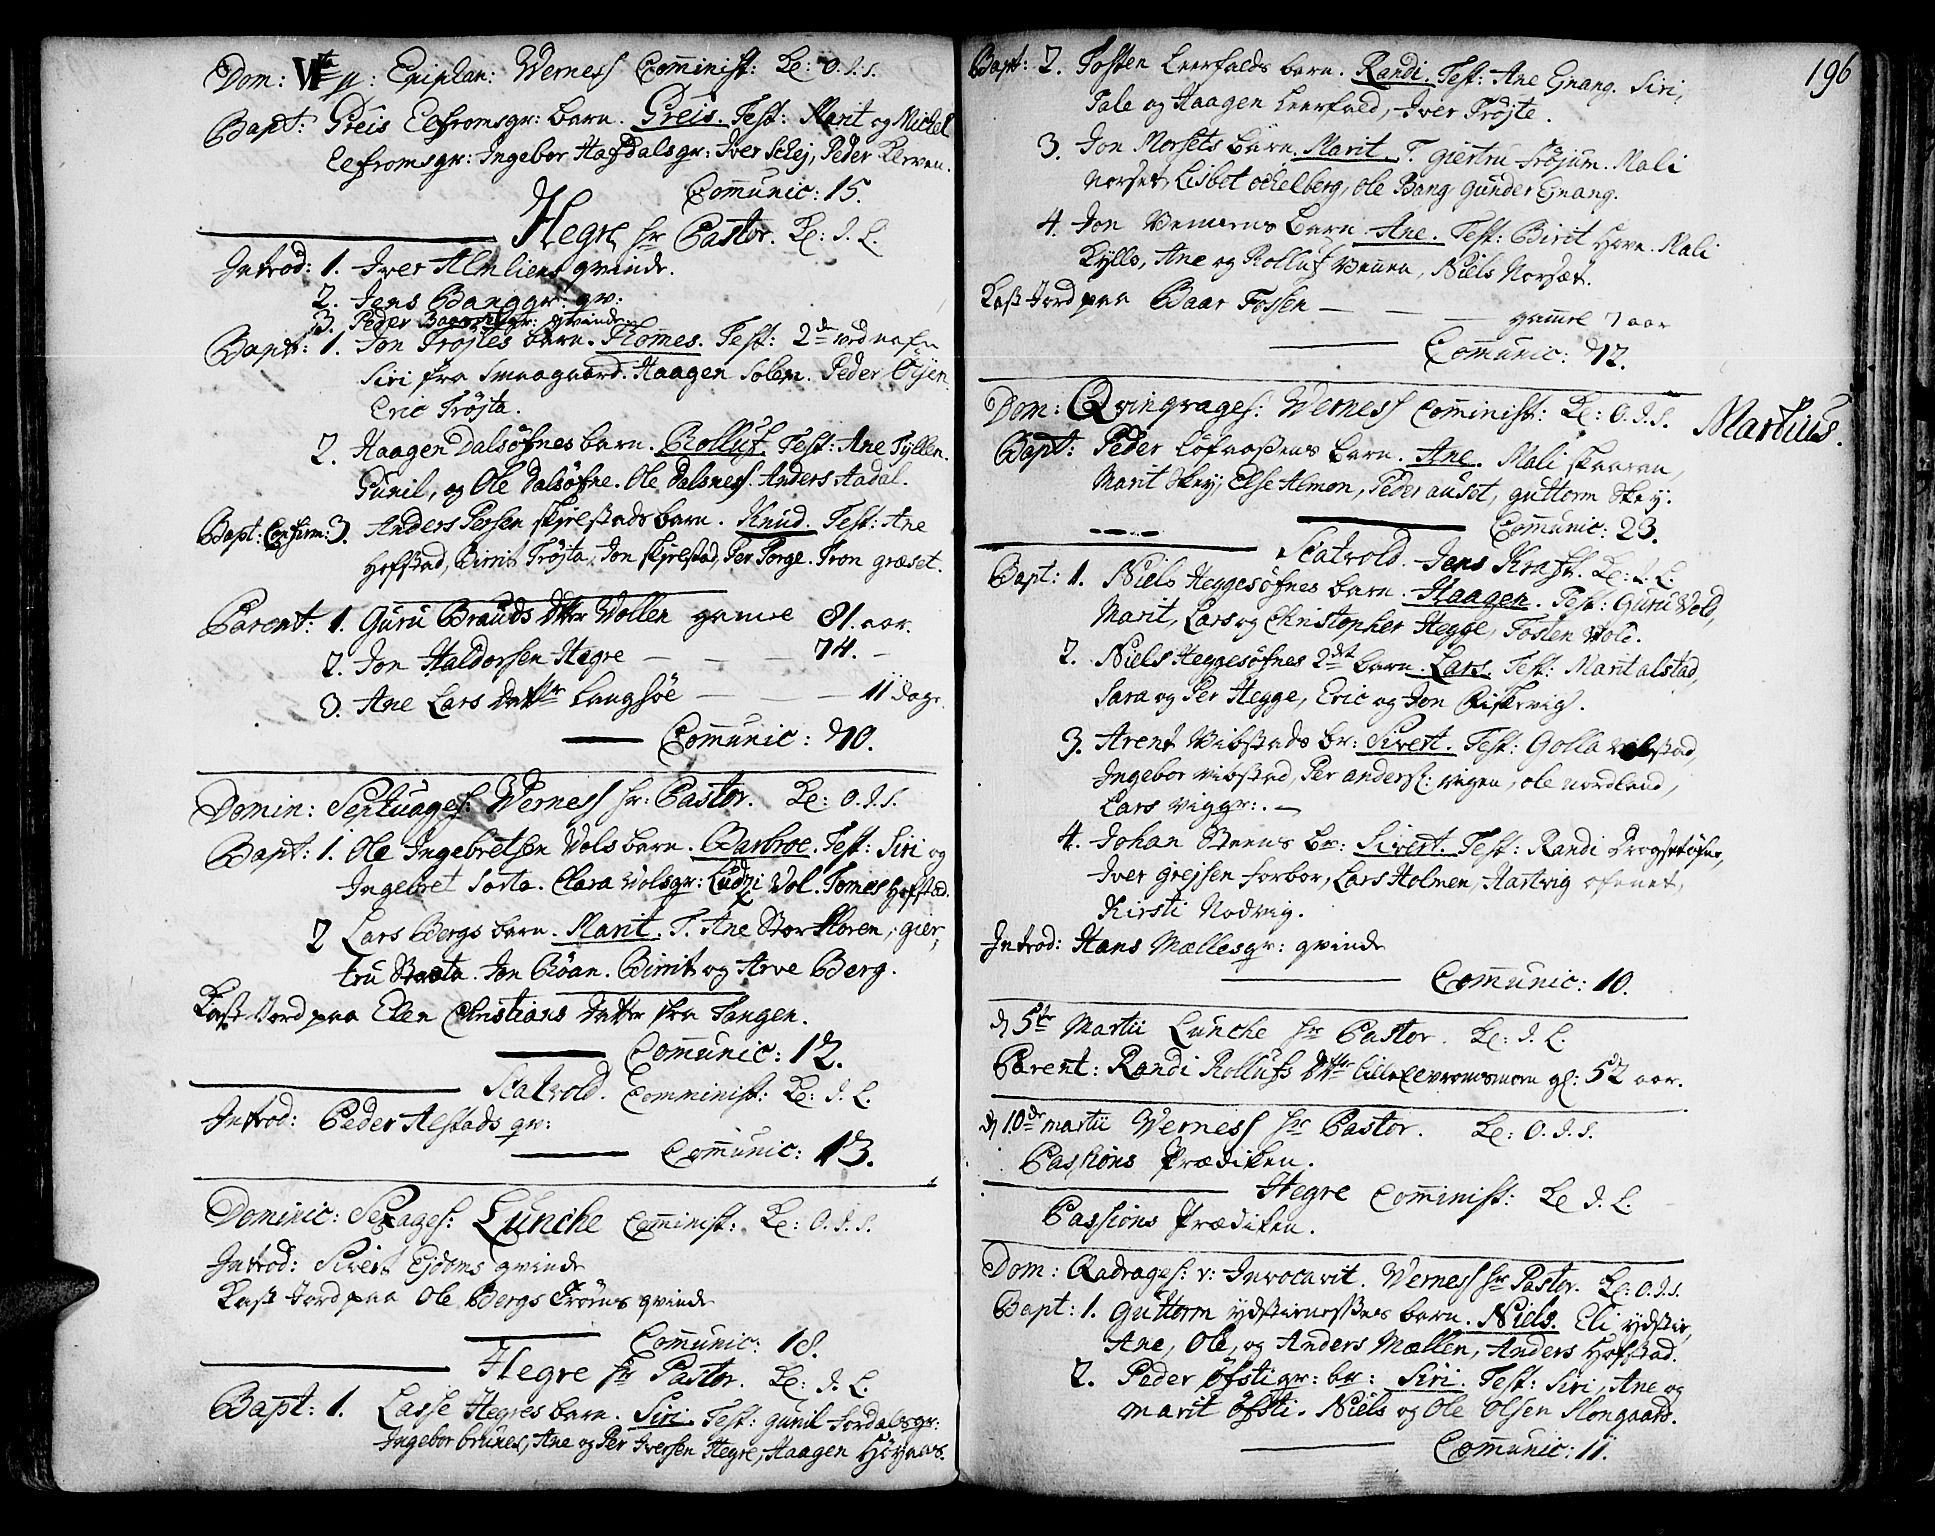 Dom: VIta p: Epiphan: Werness Comminist: Le: O. J. S.
Bapt: Greis Eefromsgr: barn. Greis. Test: Marit og Michel
Eefromsgr: Ingebor Hafdalsgr: Iver Schej, Peder
Communic: 15.
Hegre hr Pastor. Le: J. L.
Introd: 1. Iver Almliens qvinde.
2. Jens Banggr: qv:
3. Peder qvinde
Bapt: 1. Jon Tröjtes barn. Thomes. Test: 2de ved nafn
Siri fra Smaagaard. Haagen Solem. Peder Öjen.
Eric Tröjta.
2. Haagen Dalsöfnes barn. Rolluf. Test: Ane Fyllen.
Gunil, og Ole Dalsöfne. Ole Dalsness. Anders Aadal.
Bapt: Confirm: 3. Anders Persen skjelstads barn. Knud. Test: Ane
Hofstad, Birrit Tröjta, Jon skjelstad, Per Torge. Tron græset.
Parent: 1. Guru Brauds Dtter Wollen gamel 81. aar.
2. Jon Haldorsen Hegre — — — 74. —
3. Ane Lars datter Langsöe — — 11 dage.
Communic: 70.
Domin: Septuages: Werness hr: Pastor. Le: O. J. S.
Bapt: 1. Ole Ingebretsen Vols barn. Barbroe. Test: Siri og
Ingebret Sorta. Clara Volsgr: Ludvi Vol. Tomes Hofstad.
2 Lars Bergs barn. Marit. T. Ane Stor Floren, gier,
tru Starta. Jon Röan. Birrit og Arve Berg.
Kast Jord paa Elen Christians Datter fra Tangen.
Communic: 12.
Scatvold. Comminist: Le: J. L.
Introd: Peder Alstads qv:
Communic: 13.
Dominic: Sexages: Lunche Comminist: Le: O. J. S.
Introd: Sivert Ejdoms qvinde
Kast Jord paa Ole Bergs Tröns qvinde
Communic: 18.
Hegre hr Pastor. Le: J. L.
Bapt: 1. Lasse Hegres barn. Siri. Test: gunil Jordalsgr:
Ingebor brunes, Ane og Per Iversen Hegre, Haagen
196
Bapt: 2. Tosten Leerfalds barn. Randi. Test: Ane Gnang. Siri,
Pale og Haagen Leerfald, Iver Tröjte.
3. Jon Morsets barn Marit. T. giertru fröjum. Mali
Morset, Lisbet ockelberg, Ole Bang gunder Gnang.
4. Jon barn Ane. Test: Birit Hove. Mali
Kyllo, Ane og Rolluf Niels Norsæt.
Kast Jord paa Baar Fossen — — — gamel 7 aar
Communic: 72.
Dom: Qvinqvages: Werness Comminist: Le: O. J. S. Martius.
Bapt: Peder Löfaasens barn. Ane. Mali skaaren,
Marit Skej, Else Almon, Peder auset, guttorm Skej.
Communic: 23.
Scatvold. Jens Kraft. Le: J. L.
Bapt: 1. Niels Heggesöfnes barn. Haagen. Test: Guru Vold,
Marit, Lars og Christopher Hegge, Tosten Vold.
2. Niels Heggesöfnes 2det barn. Lars. Test: Marit alstad,
Sara og Per Hegge, Eric og Jon Fiskvig.
3. Arent Vibstads br: Sivert. Test: Golla Vibstad,
Ingebor Vibstad, Per anders: vigen, Ole nordland,
Lars viggr: —
4. Johan Steens br: Sivert. Test: Randi
Iver grejsen forbor, Lars Holmen, Hartvig ofenet,
Kirsti Nodvig.
Introd: Hans Mælles gr: qvinde
Communic: 10.
d 5te Martii Lunche hr Pastor. Le: J. L.
Parent: Randi Rollufs Dtter lille gl: 52 aar.
d 10de martii Werness hr Pastor. Le: O. J. S.
Passions Prædiken.
Hegre Comminist: Le J. L.
Passions Prædiken.
Dom: Qadrages: v: Invocavit. Werness hr Pastor. Le: O. J. S.
Bapt: 1. Guttorm barn. Niels. Eli ydstie,
Ane, Ole, og Anders Mællen, Anders Hofstad.
2. Peder öfstigr: br: Siri. Test: Siri, Ane og
marit öfsti. Niels og Ole Olsen
Communic: 11.